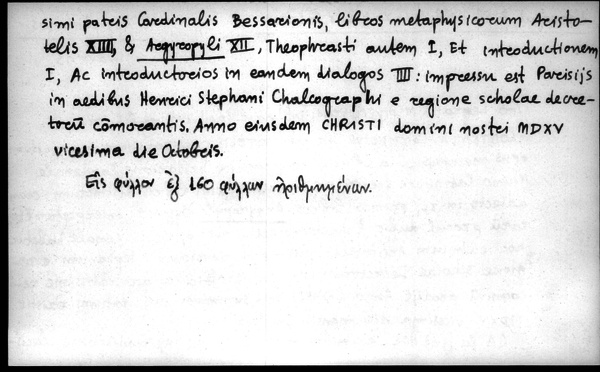 simi patris Cardinalis Bessarionis, libros metaphysicorum Aristo-
telis XIIII, & Argyropyli XII, Theophrasti autem I, Et introductionem
I, Ac introductorios in eandem dialogos III : impressu est Parisijs
in aedibus Henrici Stephani Chalcographi e regione scholae decre-
torū cōmorantis. Anno eiusdem CHRISTI domini nostri MDXV
vicesima die Octobris.
Εἰς φύλλον ἐξ 160 φύλλων ἠριθμημένων.